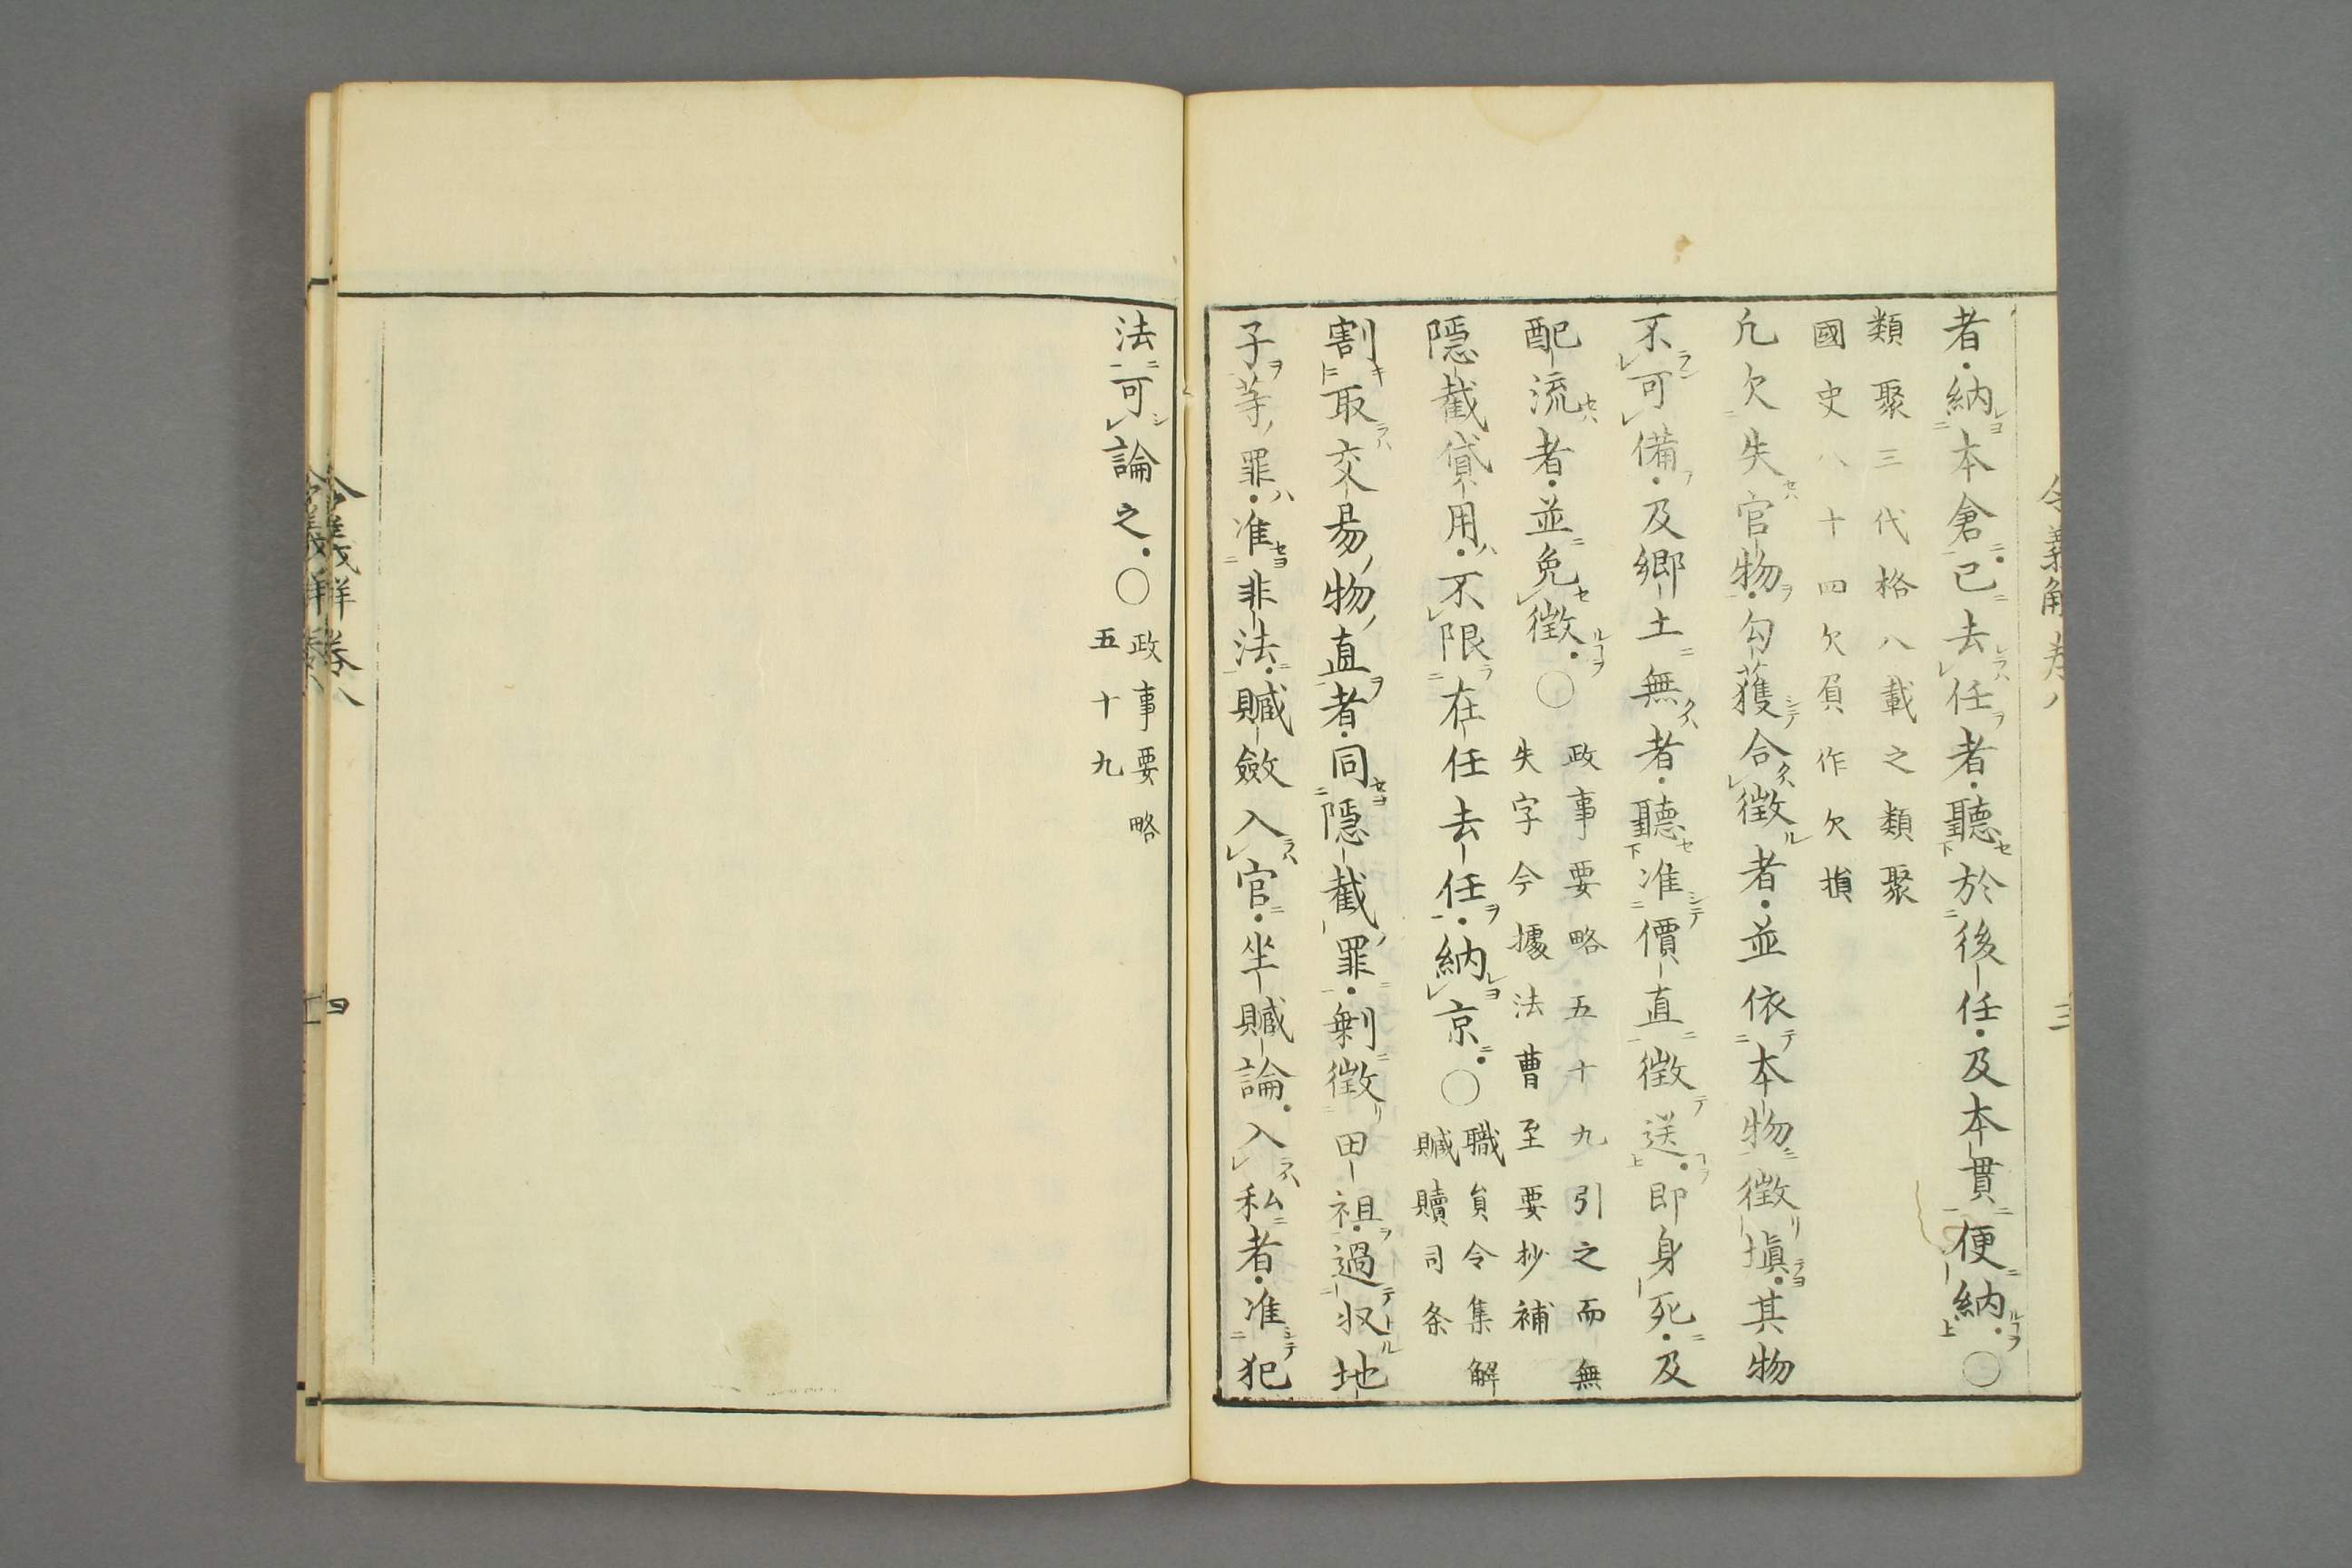 令義解卷八 三
者・納本倉・已去任者・聽於後任・及本貫便納・〇
類聚三代格八載之類聚
國史八十四欠負作欠損
凢欠失官物・勾獲合徴者・並依本物徴塡・其物
不可備・及郷土無者・聽准價直徴送・即身死・及
配流者・並免徴・〇
政事要略五十九引之而無
失字今據法曹至要抄補
隱截貸用・不限在任去任・納京・〇
職員令集解
贓贖司条
割取交易物直者・同隱截罪・剰徴田租・過収地
子等罪・准非法・贓斂入官・坐贓論・入私者・准犯
法可論之・〇
政事要略
五十九
令義解卷八 四